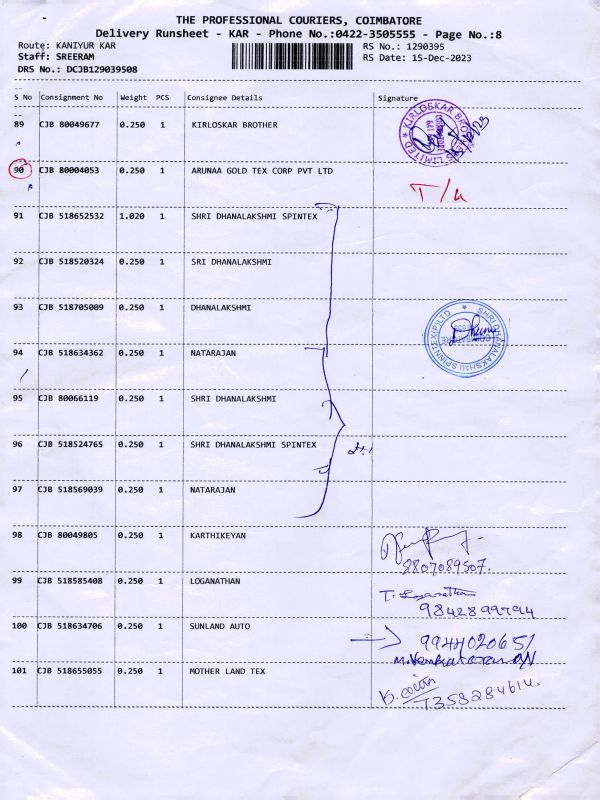 THE PROFESSIONAL COURIERS, COIMBATORE
Delivery Runsheet - KAR - Phone No.:0422-3505555 - Page No.:8
Route: KANIYUR KAR
RS No.: 1290395
Staff: SREERAM
RS Date: 15-Dec-2023
DRS No.: DCJB129039508
S No Consignment No Weight PCS Consignee Details Signature
89 CJB 80049677 0.250 1 KIRLOSKAR BROTHER
KIRLOSKAR BROTHERS LIMITED
90 CJB 80004053 0.250 1 ARUNAA GOLD TEX CORP PVT LTD
91 CJB 518652532 1.020 1 SHRI DHANALAKSHMI SPINTEX
92 CJB 518520324 0.250 1 SRI DHANALAKSHMI
93 CJB 518705009 0.250 1 DHANALAKSHMI
SHRI DHANALAKSHMI SPINNTEX (P) LTD
94 CJB 518634362 0.250 1 NATARAJAN
95 CJB 80066119 0.250 1 SHRI DHANALAKSHMI
96 CJB 518524765 0.250 1 SHRI DHANALAKSHMI SPINTEX
97 CJB 518569039 0.250 1 NATARAJAN
98 CJB 80049805 0.250 1 KARTHIKEYAN
99 CJB 518585408 0.250 1 LOGANATHAN
T. Loganathan
100 CJB 518634706 0.250 1 SUNLAND AUTO
9944020651
101 CJB 518655055 0.250 1 MOTHER LAND TEX